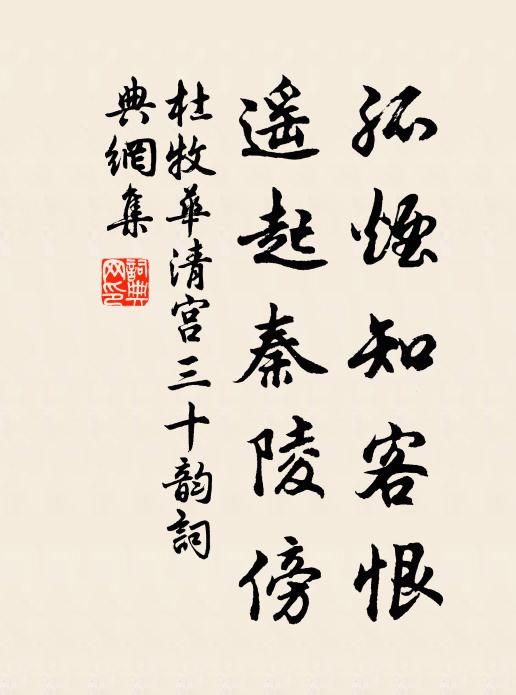 孤煙知客恨
遥起秦陵傍
杜牧華清宫三十韵詞
典網集
詞典
网印